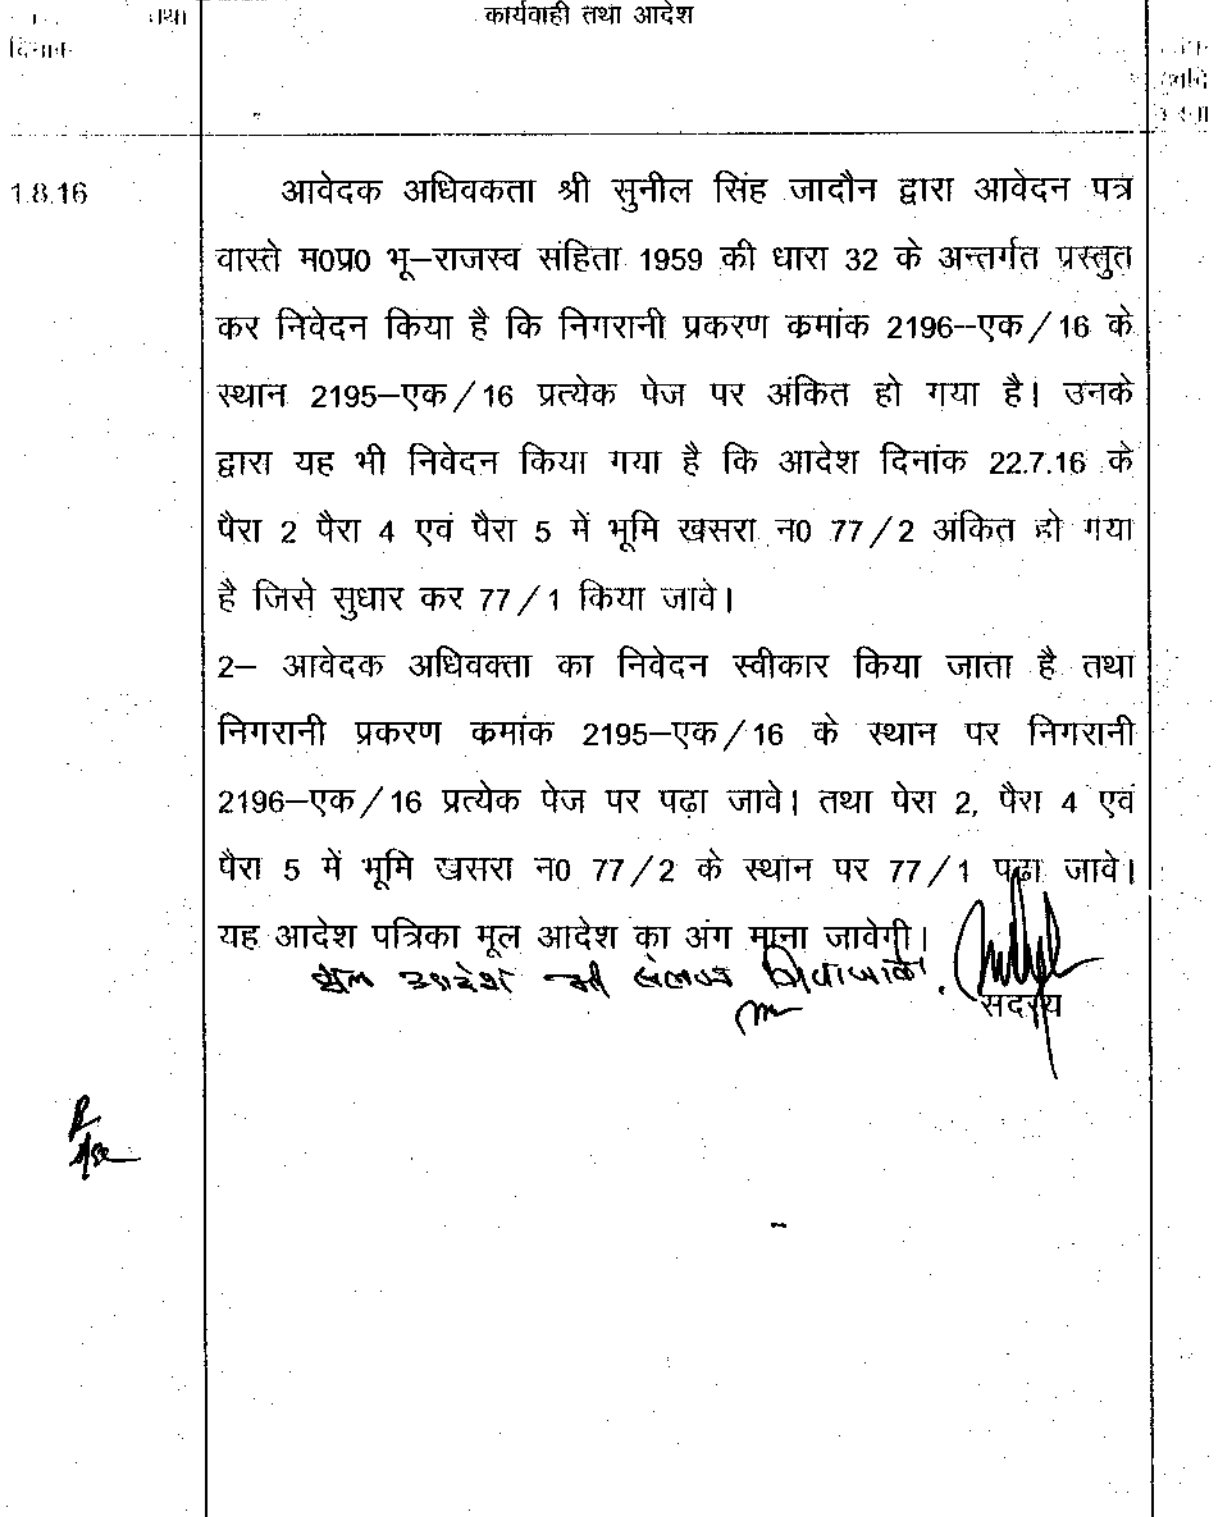 तथा
कार्यवाही तथा आदेश
दिनांक
1.8.16
आवेदक अधिवकता श्री सुनील सिंह जादौन द्वारा आवेदन पत्र
वास्ते म0प्र0 भू–राजस्व संहिता 1959 की धारा 32 के अन्तर्गत प्रस्तुत
कर निवेदन किया है कि निगरानी प्रकरण कमांक 2196--एक/16 के
स्थान 2195–एक/16 प्रत्येक पेज पर अंकित हो गया है। उनके
द्वारा यह भी निवेदन किया गया है कि आदेश दिनांक 22.7.16 के
पैरा 2 पैरा 4 एवं पैरा 5 में भूमि खसरा न0 77/2 अंकित हो गया
है जिसे सुधार कर 77/1 किया जावे।
2– आवेदक अधिवक्ता का निवेदन स्वीकार किया जाता है तथा
निगरानी प्रकरण कमांक 2195–एक/16 के स्थान पर निगरानी
2196–एक/16 प्रत्येक पेज पर पढ़ा जावे। तथा पेरा 2, पैरा 4 एवं
पैरा 5 में भूमि खसरा न0 77/2 के स्थान पर 77/1 पढ़ा जावे।
यह आदेश पत्रिका मूल आदेश का अंग माना जावेगी।
मूल आदेश संलग्न
सदस्य